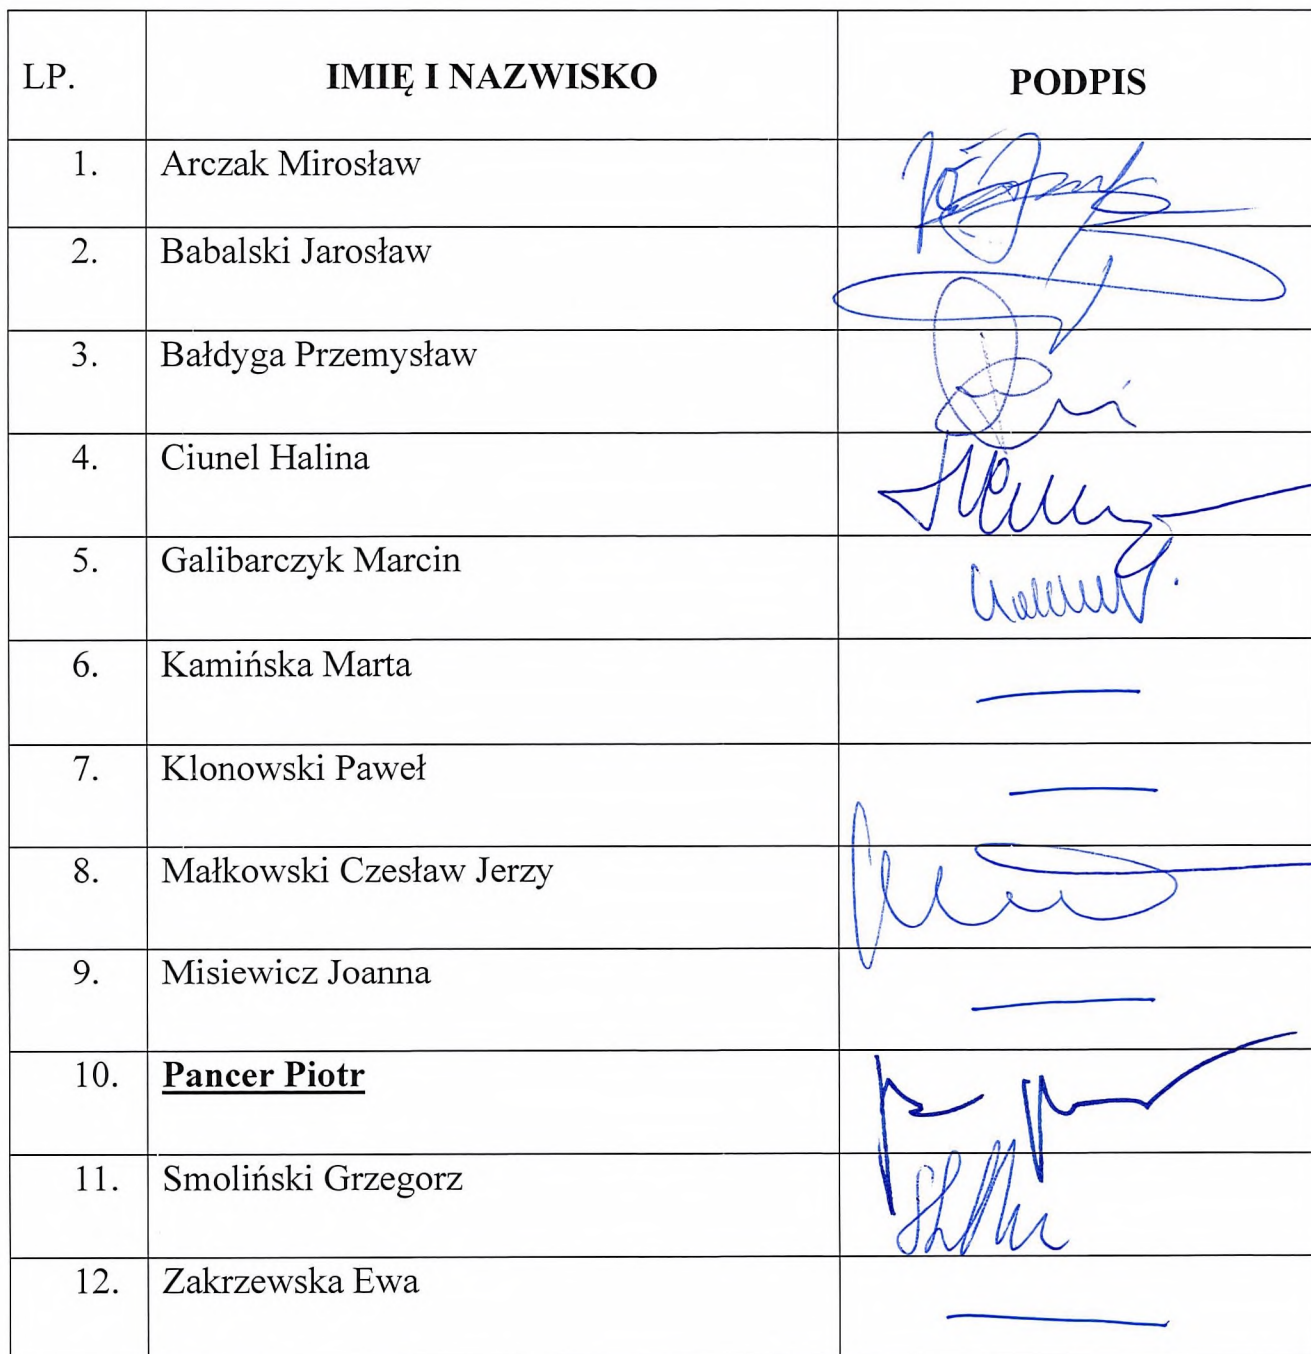 LP. IMIĘ I NAZWISKO PODPIS
1. Arczak Mirosław
2. Babalski Jarosław
3. Bałdyga Przemysław
4. Ciunel Halina
5. Galibarczyk Marcin
6. Kamińska Marta
7. Klonowski Paweł
8. Małkowski Czesław Jerzy
9. Misiewicz Joanna
10. Pancer Piotr
11. Smoliński Grzegorz
12. Zakrzewska Ewa